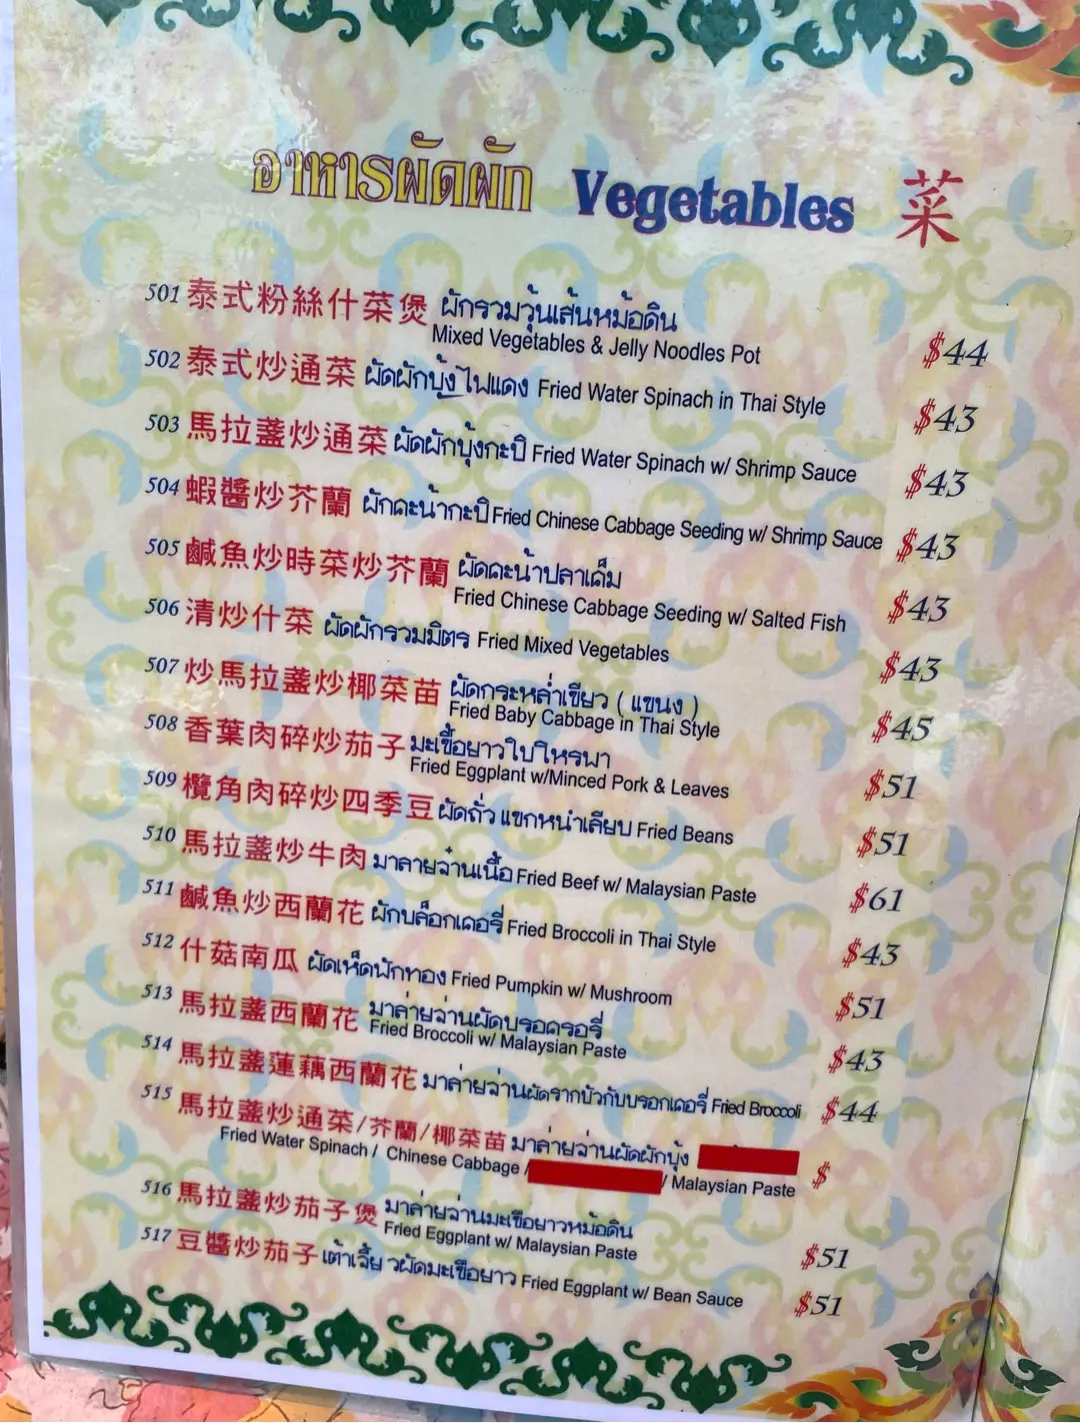 อาหารผัดผัก Vegetables 菜
501 泰式粉絲什菜煲 ผักรวมวุ้นเส้นหม้อดิน
Mixed Vegetables & Jelly Noodles Pot $44
502 泰式炒通菜 ผัดผักบุ้งไฟแดง Fried Water Spinach in Thai Style $43
503 馬拉盞炒通菜 ผัดผักบุ้งกะปิ Fried Water Spinach w/ Shrimp Sauce $43
504 蝦醬炒芥蘭 ผักคะน้ากะปิ Fried Chinese Cabbage Seeding w/ Shrimp Sauce $43
505 鹹魚炒時菜炒芥蘭 ผัดคะน้าปลาเค็ม
Fried Chinese Cabbage Seeding w/ Salted Fish $43
506 清炒什菜 ผัดผักรวมมิตร Fried Mixed Vegetables $43
507 炒馬拉盞炒椰菜苗 ผัดกระหล่ำเขียว ( แขนง )
Fried Baby Cabbage in Thai Style $45
508 香葉肉碎炒茄子 มะเขื้อยาวใบโหรพา
Fried Eggplant w/Minced Pork & Leaves $51
509 欖角肉碎炒四季豆 ผัดถั่ว แขกหนำเลียบ Fried Beans $51
510 馬拉盞炒牛肉 มาลายจ๋านเนื้อ Fried Beef w/ Malaysian Paste $61
511 鹹魚炒西蘭花 ผักบล็อกเคอรี่ Fried Broccoli in Thai Style $43
512 什菇南瓜 ผัดเห็ดฟักทอง Fried Pumpkin w/ Mushroom $51
513 馬拉盞西蘭花 มาล่ายจ่านผัดบรอครอรี่
Fried Broccoli w/ Malaysian Paste $43
514 馬拉盞蓮藕西蘭花 มาล่ายจ่านผัดรากบัวกับบรอกเคอรี่ Fried Broccoli $44
515 馬拉盞炒通菜/芥蘭/椰菜苗 มาล่ายจ่านผัดผักบุ้ง
Fried Water Spinach / Chinese Cabbage / / Malaysian Paste $
516 馬拉盞炒茄子煲 มาล่ายจ่านมะเขือยาวหม้อดิน
Fried Eggplant w/ Malaysian Paste $51
517 豆醬炒茄子 เต้าเจี้ย วผัดมะเขือยาว Fried Eggplant w/ Bean Sauce $51